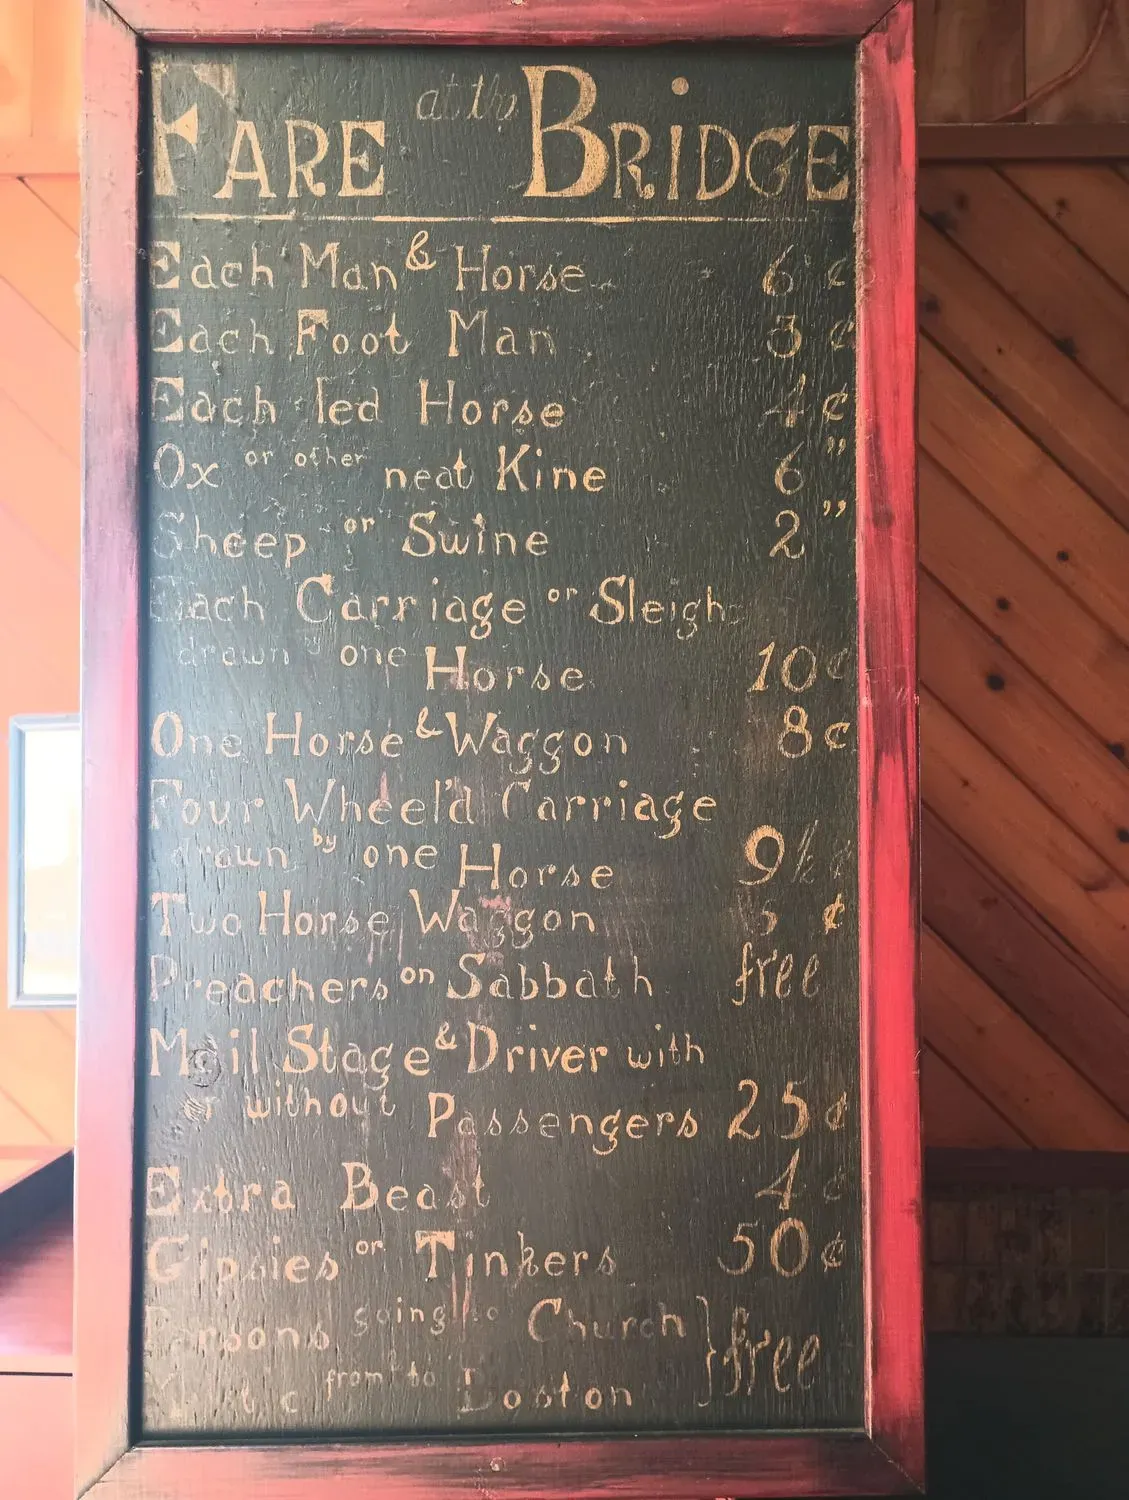 FARE at the BRIDGE
Each Man & Horse 6 ¢
Each Foot Man 3 ¢
Each led Horse 4 ¢
Ox or other neat Kine 6 "
Sheep or Swine 2 "
Each Carriage or Sleigh
drawn by one Horse 10 ¢
One Horse & Waggon 8 ¢
Four Wheel'd Carriage
drawn by one Horse 9½ ¢
Two Horse Waggon ¢
Preachers on Sabbath free
Mail Stage & Driver with
or without Passengers 25 ¢
Extra Beast 4 ¢
Gipsies or Tinkers 50 ¢
Persons going to Church } free
from to Boston